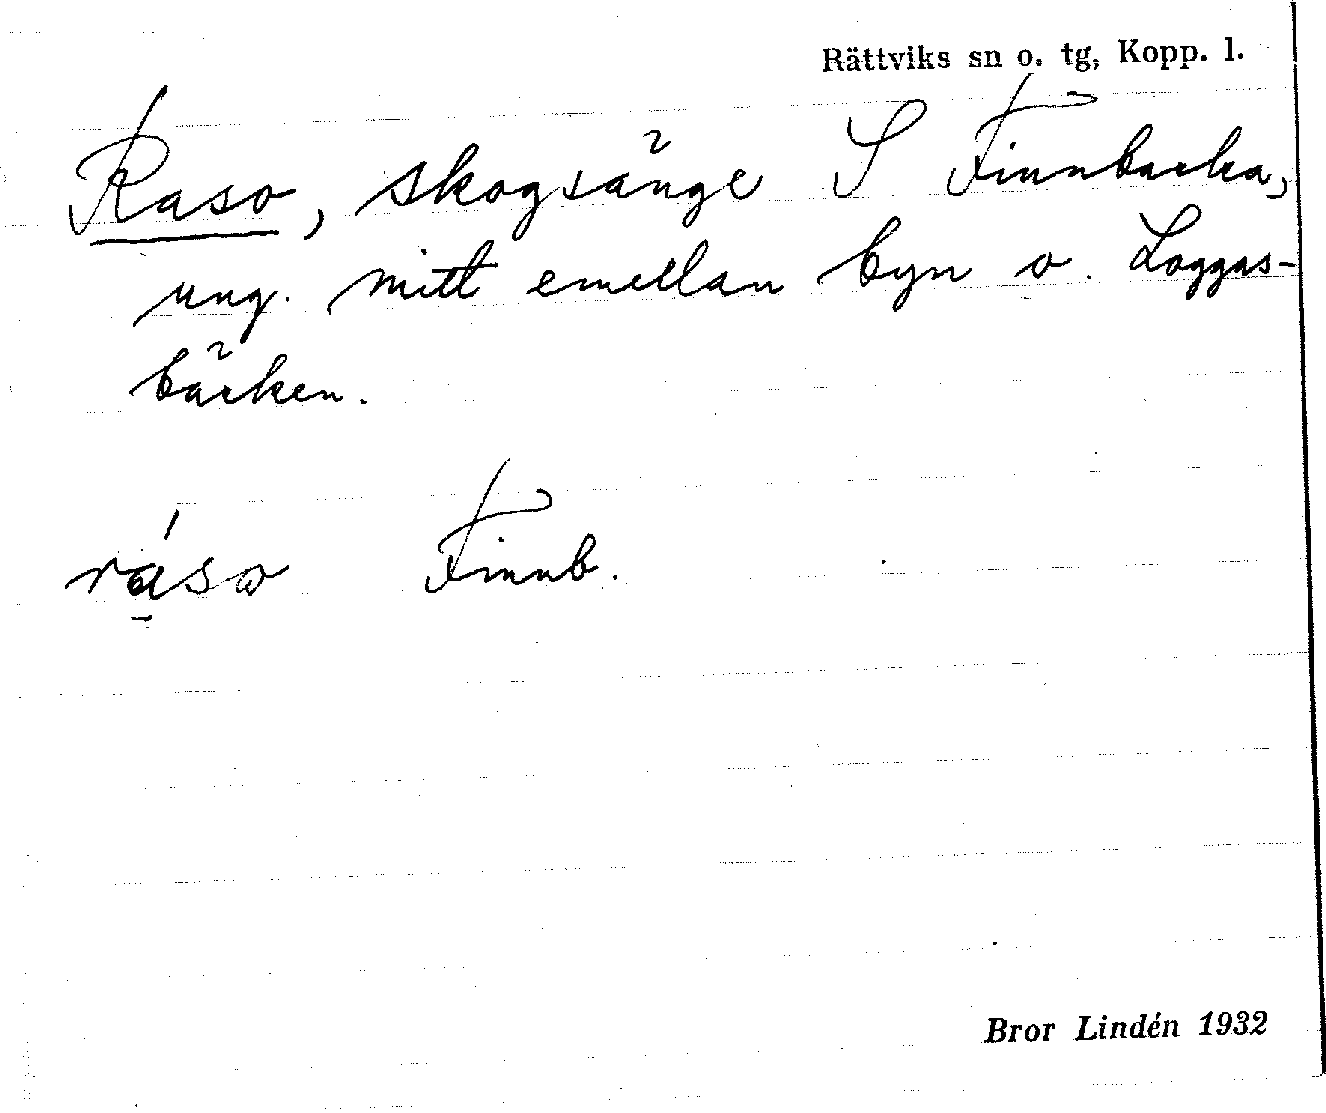 Rättviks sn o. tg, Kopp. l.
Raso, skogsänge S Finnbacka,
ung. mitt emellan byn o. Loggas-
bäcken.
ráso Finnb.
Bror Lindén 1932